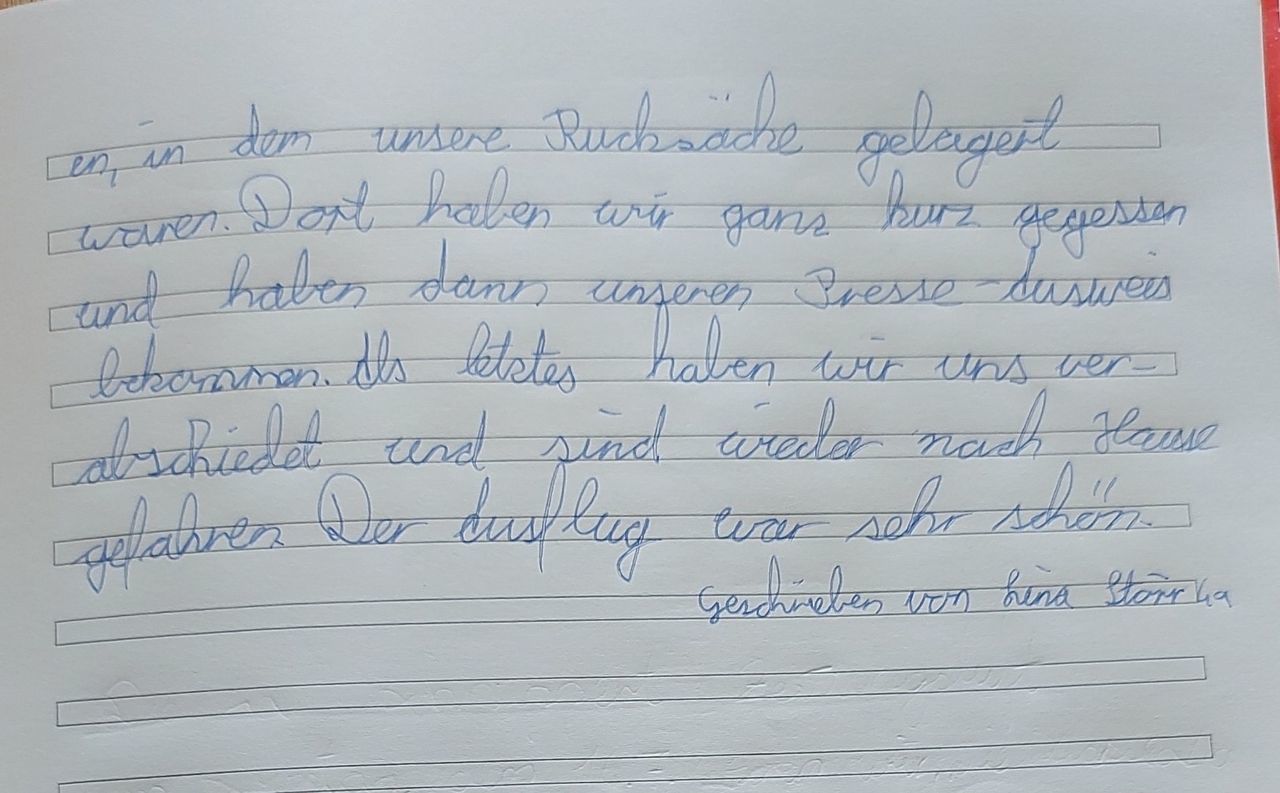 en, in dem unsere Rucksäcke gelagert
waren. Dort haben wir ganz kurz gegessen
und haben dann unseren Presse-Ausweis
bekommen. Als letztes haben wir uns ver-
abschiedet und sind wieder nach Hause
gefahren. Der Ausflug war sehr schön.
Geschrieben von Lina 4a